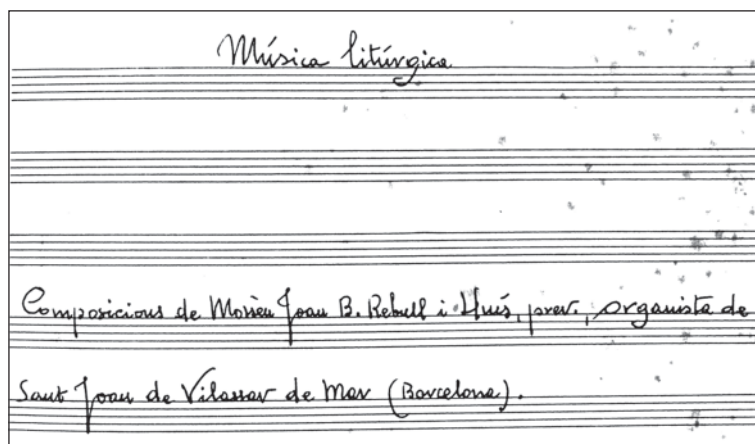 Música litúrgica
Composicions de Mossèn Joan B. Rebull i Lluís, prev., organista de
Sant Joan de Vilassar de Mar (Barcelona).